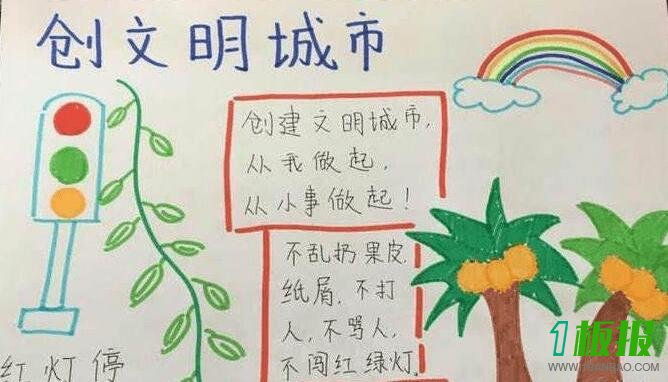 创文明城市
创建文明城市,
从我做起,
从小事做起!
不乱扔果皮
纸屑,不打
人,不骂人,
不闯红绿灯.
红灯停
1板报